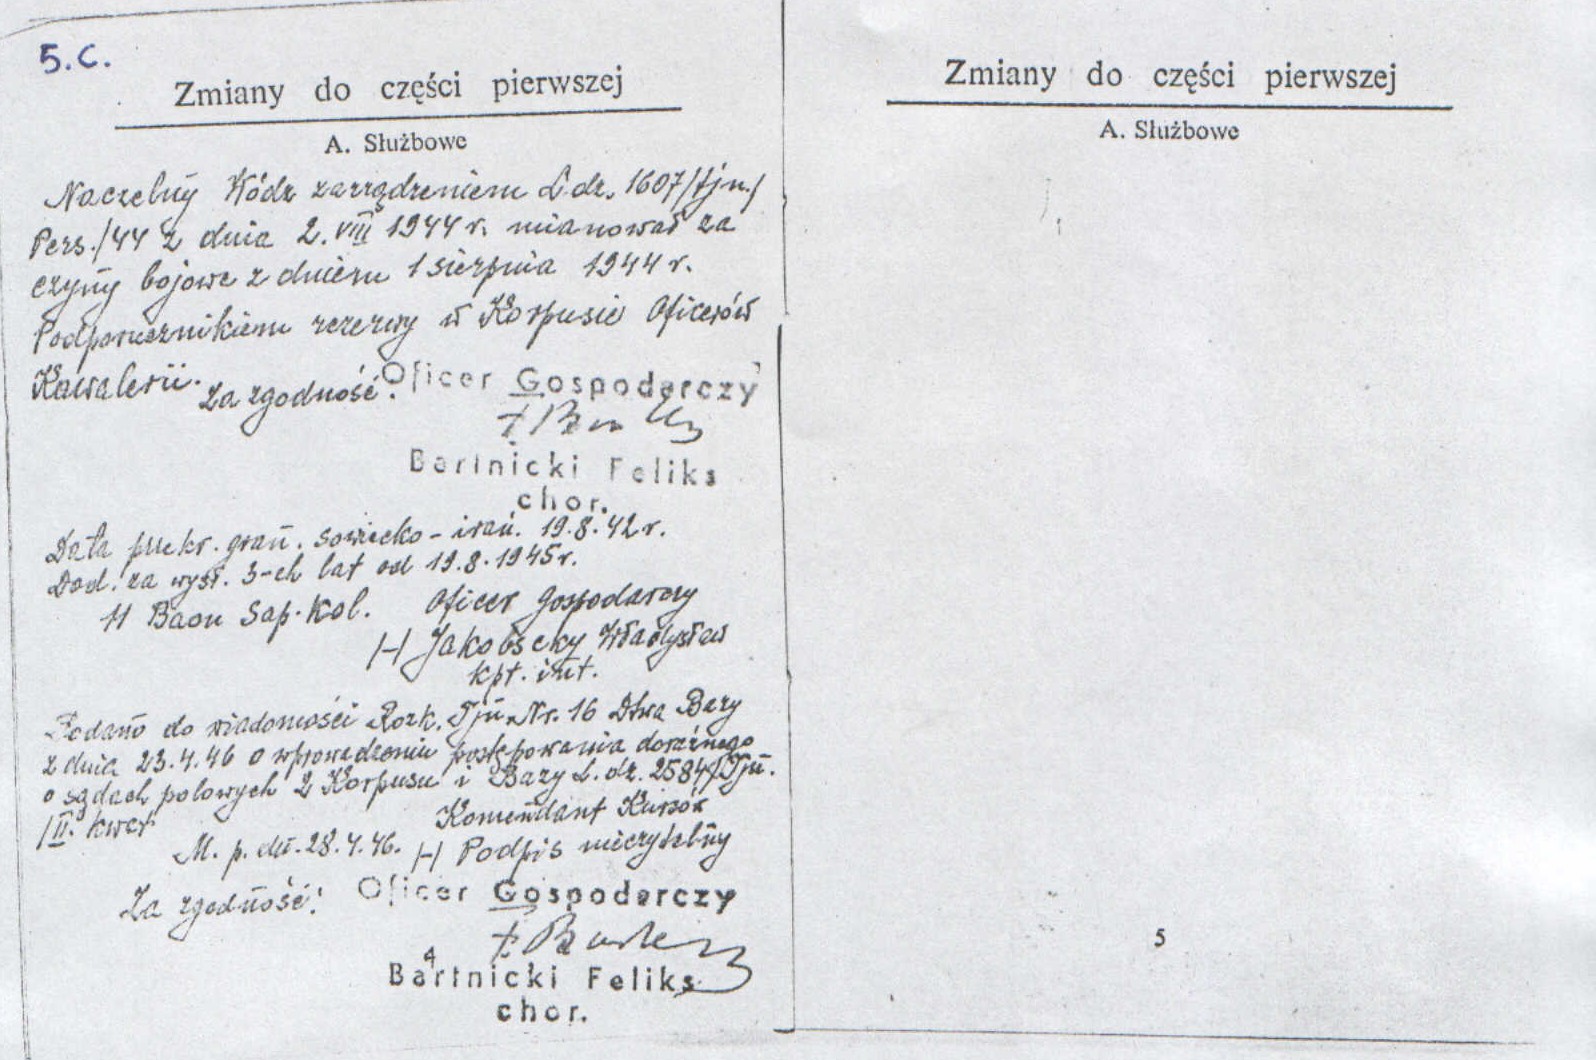 5.C.
Zmiany do części pierwszej
A. Służbowe
Naczelny Wódz zarządzeniem L.dz. 1607/tjn./
Pers./44 z dnia 2. VIII 1944 r. mianował za
czyny bojowe z dniem 1 sierpnia 1944 r.
Podporucznikiem rezerwy w Korpusie Oficerów
Kawalerii.
Za zgodność: Oficer Gospodarczy
Bartnicki Feliks
chor.
Data przekr. gran. sowiecko-irań. 19.8.42 r.
Dod. za wysł. 3-ch lat od 19.8.1945 r.
11 Baon Sap. Kol. Oficer Gospodarczy
/-/ Jakobsche Władysław
kpt. int.
Podano do wiadomości Rozk. Tjn. Nr. 16 Dtwa Bazy
z dnia 23.4.46 o wprowadzeniu postępowania doraźnego
o sądach polowych 2 Korpusu i Bazy L.dz. 2584/Tjn.
/II. kwat
Komendant Kursów
M. p. dn. 28.4.46. /-/ Podpis nieczytelny
Za zgodność: Oficer Gospodarczy
4
Bartnicki Feliks
chor.
Zmiany do części pierwszej
A. Służbowe
5